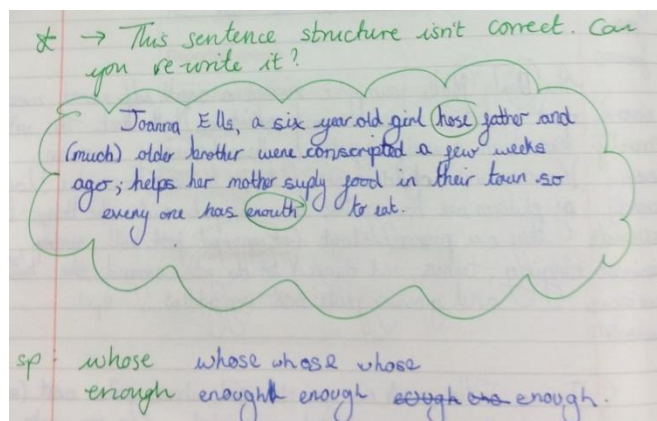 * → This sentence structure isn't correct. Can
you re write it?
Joanna Ells, a six year old girl hose father and
(much) older brother were conscripted a few weeks
ago; helps her mother suply food in their town so
every one has enouth to eat.
sp: whose whose whose whose
enough enough enough enough.